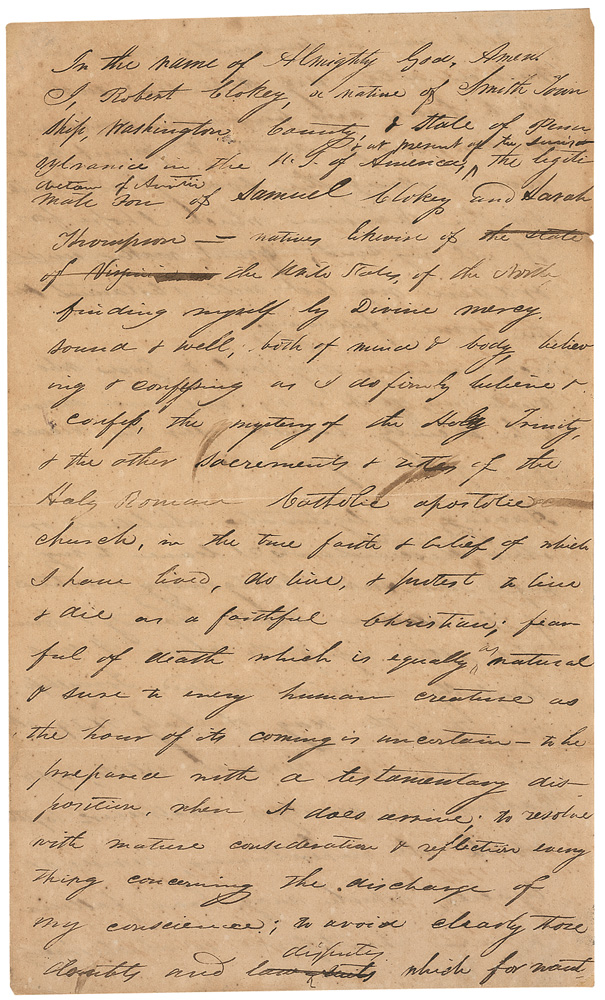 In the name of Almighty God, Amen
I, Robert Clokey, a native of Smith Town
ship, Washington County, & State of Penn
& at present of the
sylvania in the U.S. of America, ^ the legiti
of Austin
mate son of Samuel Clokey and Sarah
Thompson — natives likewise of the state
of Virginia the Unite States, of the North,
finding myself by Divine mercy,
sound & well, both of mind & body, believ
ing & confessing as I do firmly believe &
confess, the mystery of the Holy Trinity,
& the other sacrements & rites of the
Holy Roman Catholic apostolic
church, in the true faith & belief of which
I have lived, do live, & protest to live
& die as a faithful Christian; fear
ful of death which is equally ^as natural
& sure to every human creature as
the hour of its coming is uncertain — to be
prepared with a testamentary dis
position, when it does arrive; to resolve
with mature consideration & reflection every
thing concerning the discharge of
my conscience; to avoid clearly those
disputes
doubts and law suits ^ which for want